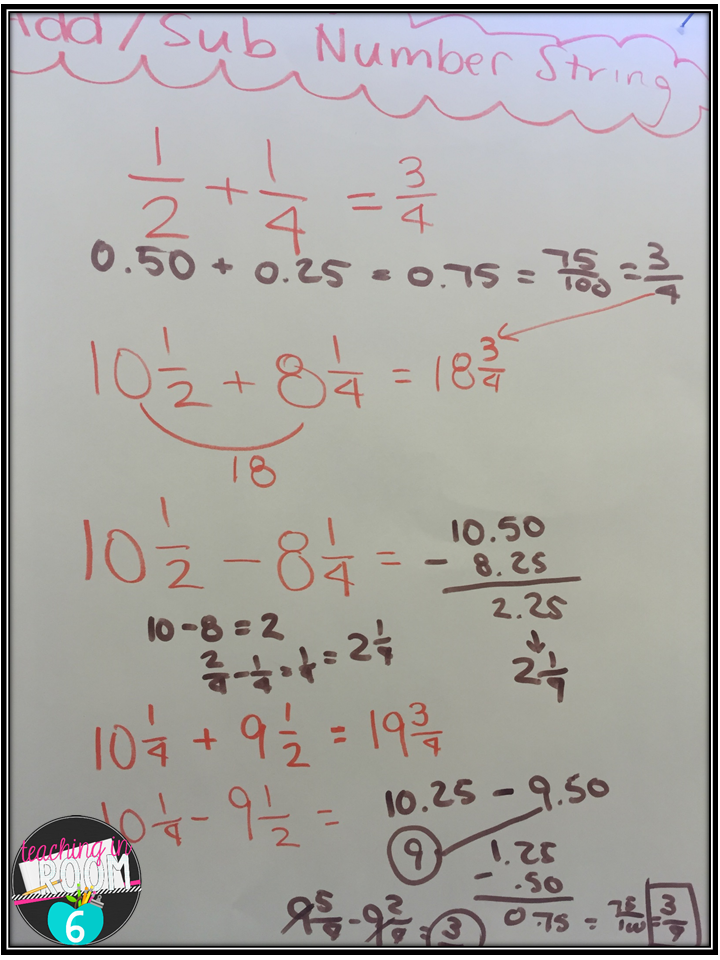 Add/Sub Number String
1/2 + 1/4 = 3/4
0.50 + 0.25 = 0.75 = 75/100 = 3/4
10 1/2 + 8 1/4 = 18 3/4
18
10 1/2 - 8 1/4 =
10.50
- 8.25
2.25
↓
2 1/4
10 - 8 = 2
2/4 - 1/4 = 1/4 = 2 1/4
10 1/4 + 9 1/2 = 19 3/4
10 1/4 - 9 1/2 =
10.25 - 9.50
9
1.25
- .50
0.75 = 75/100 = 3/4
9 5/4 - 9 2/4 = 3
teaching in
ROOM
6